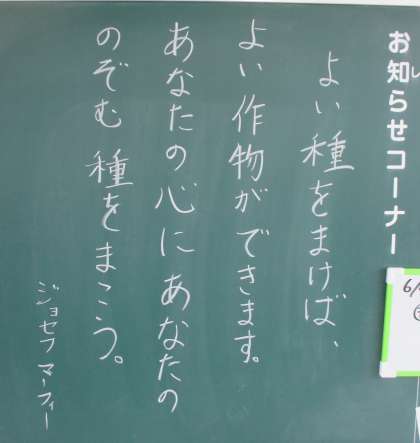 お知らせコーナー
よい種をまけば、
よい作物ができます。
あなたの心にあなたの
のぞむ種をまこう。
ジョセフマーフィー
6/